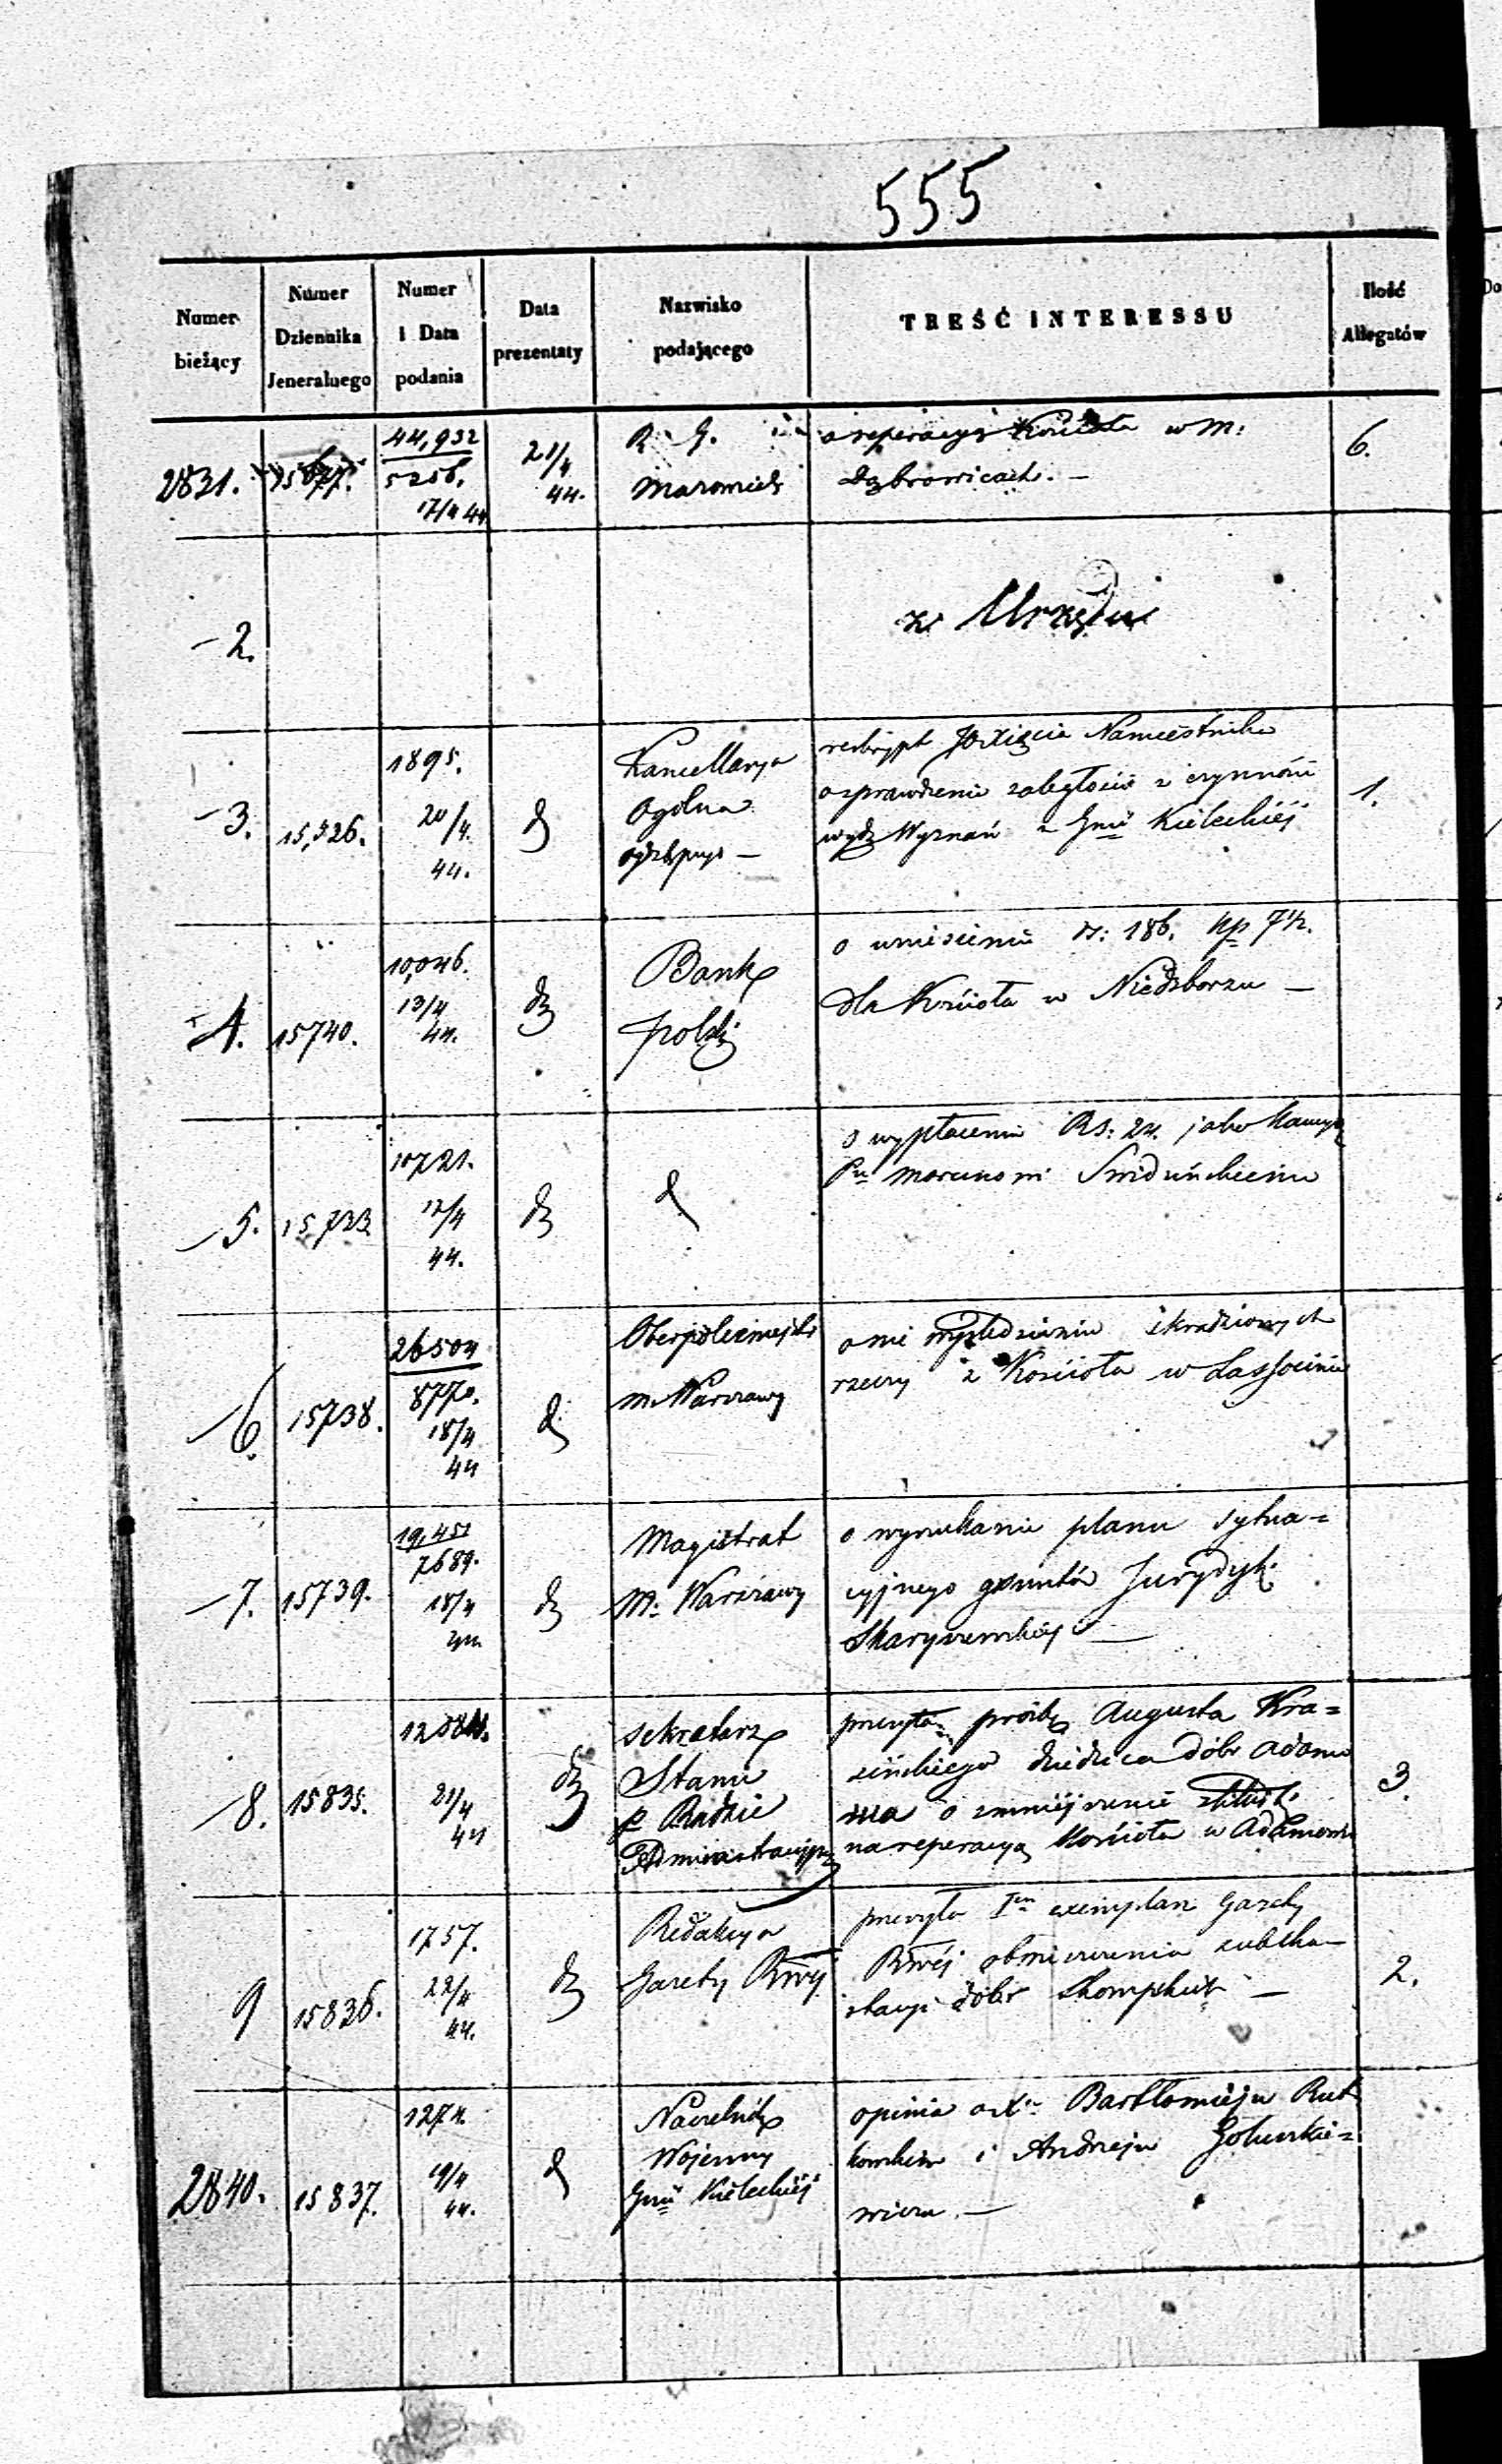 555
Numer bieżący
Numer Dziennika Jeneralnego
Numer i Data podania
Data prezentaty
Nazwisko podającego
TREŚĆ INTERESSU
Ilość Allegatów
2831. 15677. 44,932 5256. 17/4 44 21/4 44. R. G. Mazowiec
o reperacyi Kościoła w M:
Dąbrowicach. —
6.
— 2.
z Urzędu
— 3. 15,526. 1895. 20/4. 44. d
Kancellarya
Ogólna
reskrypt JO Xięcia Namiestnika
o sprawdzenie zaległości z czynności
wydz Wyznań z Gnii Kieleckiéj
1.
— 4. 15740. 10,046. 13/4 44. dz
Bank
polski
o wniesieniu rs: 186. kp 7½.
dla Kościoła w Niedzborzu —
— 5. 15,733. 10721. 12/4 44. dz
d
o wypłacenie Rs: 24. jako kaucyą
— 6. 15738. 26504 8770. 18/4 44 d
Oberpolicmejstr
m. Warszawy
o nie wyśledzeniu skradzionych
rzeczy z Kościoła w Lassocinie
— 7. 15739. 19,451 7689. 18/4 44. dz
Magistrat
M. Warszawy
o wyszukanie planu sytua=
cyjnego gruntów Jurydyk.
Skaryszewskiéj —
— 8. 15835. 21/4 44 dz
Sekretarz
Stanu
p Radzie
Administracyjnéj
przesyła prośbę Augusta Kra=
sińskiego dziedzica dóbr Adamo
wa o zmniejszenie składk.
na reperacyą Kościoła w Adamowie
3.
9 15836. 1757. 22/4 44. dz
Redakcya
Gazety Rwéj
przesyła exemplarz Gazety
Rwéj obwieszczenia subha—
stacyi dóbr
2.
2840. 15837. 1274. 19/4 44. d
Naczelnik
Wojenny
Gnii Kieleckiéj
opinia o Xu Bartłomieju Rut
kowskim i Andrzeju
wiczu. —